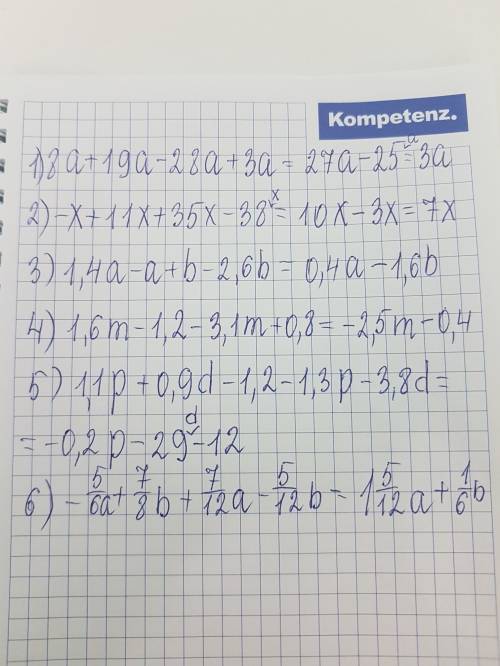 Kompetenz.
1) 8a+19a-28a+3a = 27a-25a=3a
2) -x+11x+35x-38x= 10x-3x=7x
3) 1,4a-a+b-2,6b= 0,4a-1,6b
4) 1,6m-1,2-3,1m+0,8= -2,5m-0,4
5) 1,1p+0,9d-1,2-1,3p-3,8d=
=-0,2p-29d-12
6) -5/6a+7/8b+7/12a-5/12b= 1 5/12a+1/6b